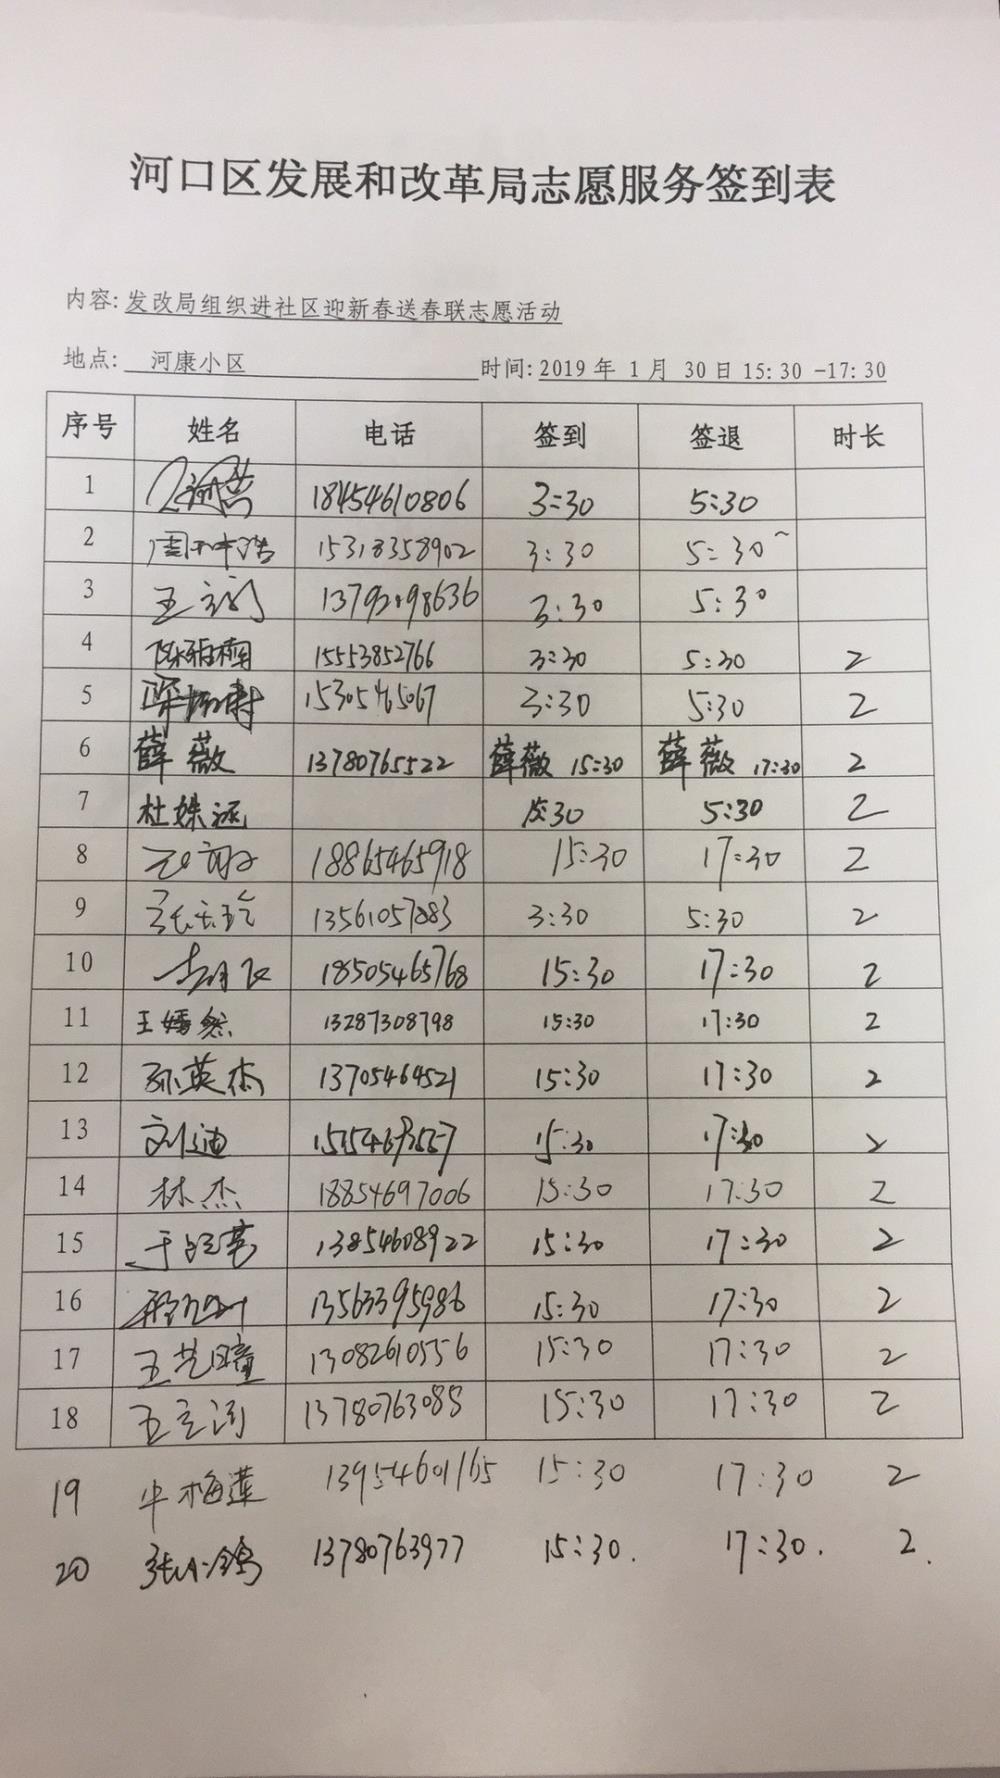 河口区发展和改革局志愿服务签到表
内容: 发改局组织进社区迎新春送春联志愿活动
地点: 河康小区 时间: 2019 年 1 月 30 日 15: 30 -17: 30
序号 姓名 电话 签到 签退 时长
1 18454610806 3:30 5:30
2 15318358902 3:30 5:30
3 3:30 5:30
4 15553852766 3:30 5:30 2
5 3:30 5:30 2
6 薛薇 13780765522 薛薇 15:30 薛薇 17:30 2
7 15:30 5:30 2
8 18865465918 15:30 17:30 2
9 13561057883 3:30 5:30 2
10 18505465768 15:30 17:30 2
11 王嫣然 13287308798 15:30 17:30 2
12 孙英杰 13705464521 15:30 17:30 2
13 刘迪 15:30 17:30 2
14 林杰 18854697006 15:30 17:30 2
15 13854608922 15:30 17:30 2
16 13563395986 15:30 17:30 2
17 王艺瞳 13082610556 15:30 17:30 2
18 13780763085 15:30 17:30 2
19 牛梅莲 13954601165 15:30 17:30 2
20 13780763977 15:30. 17:30. 2.